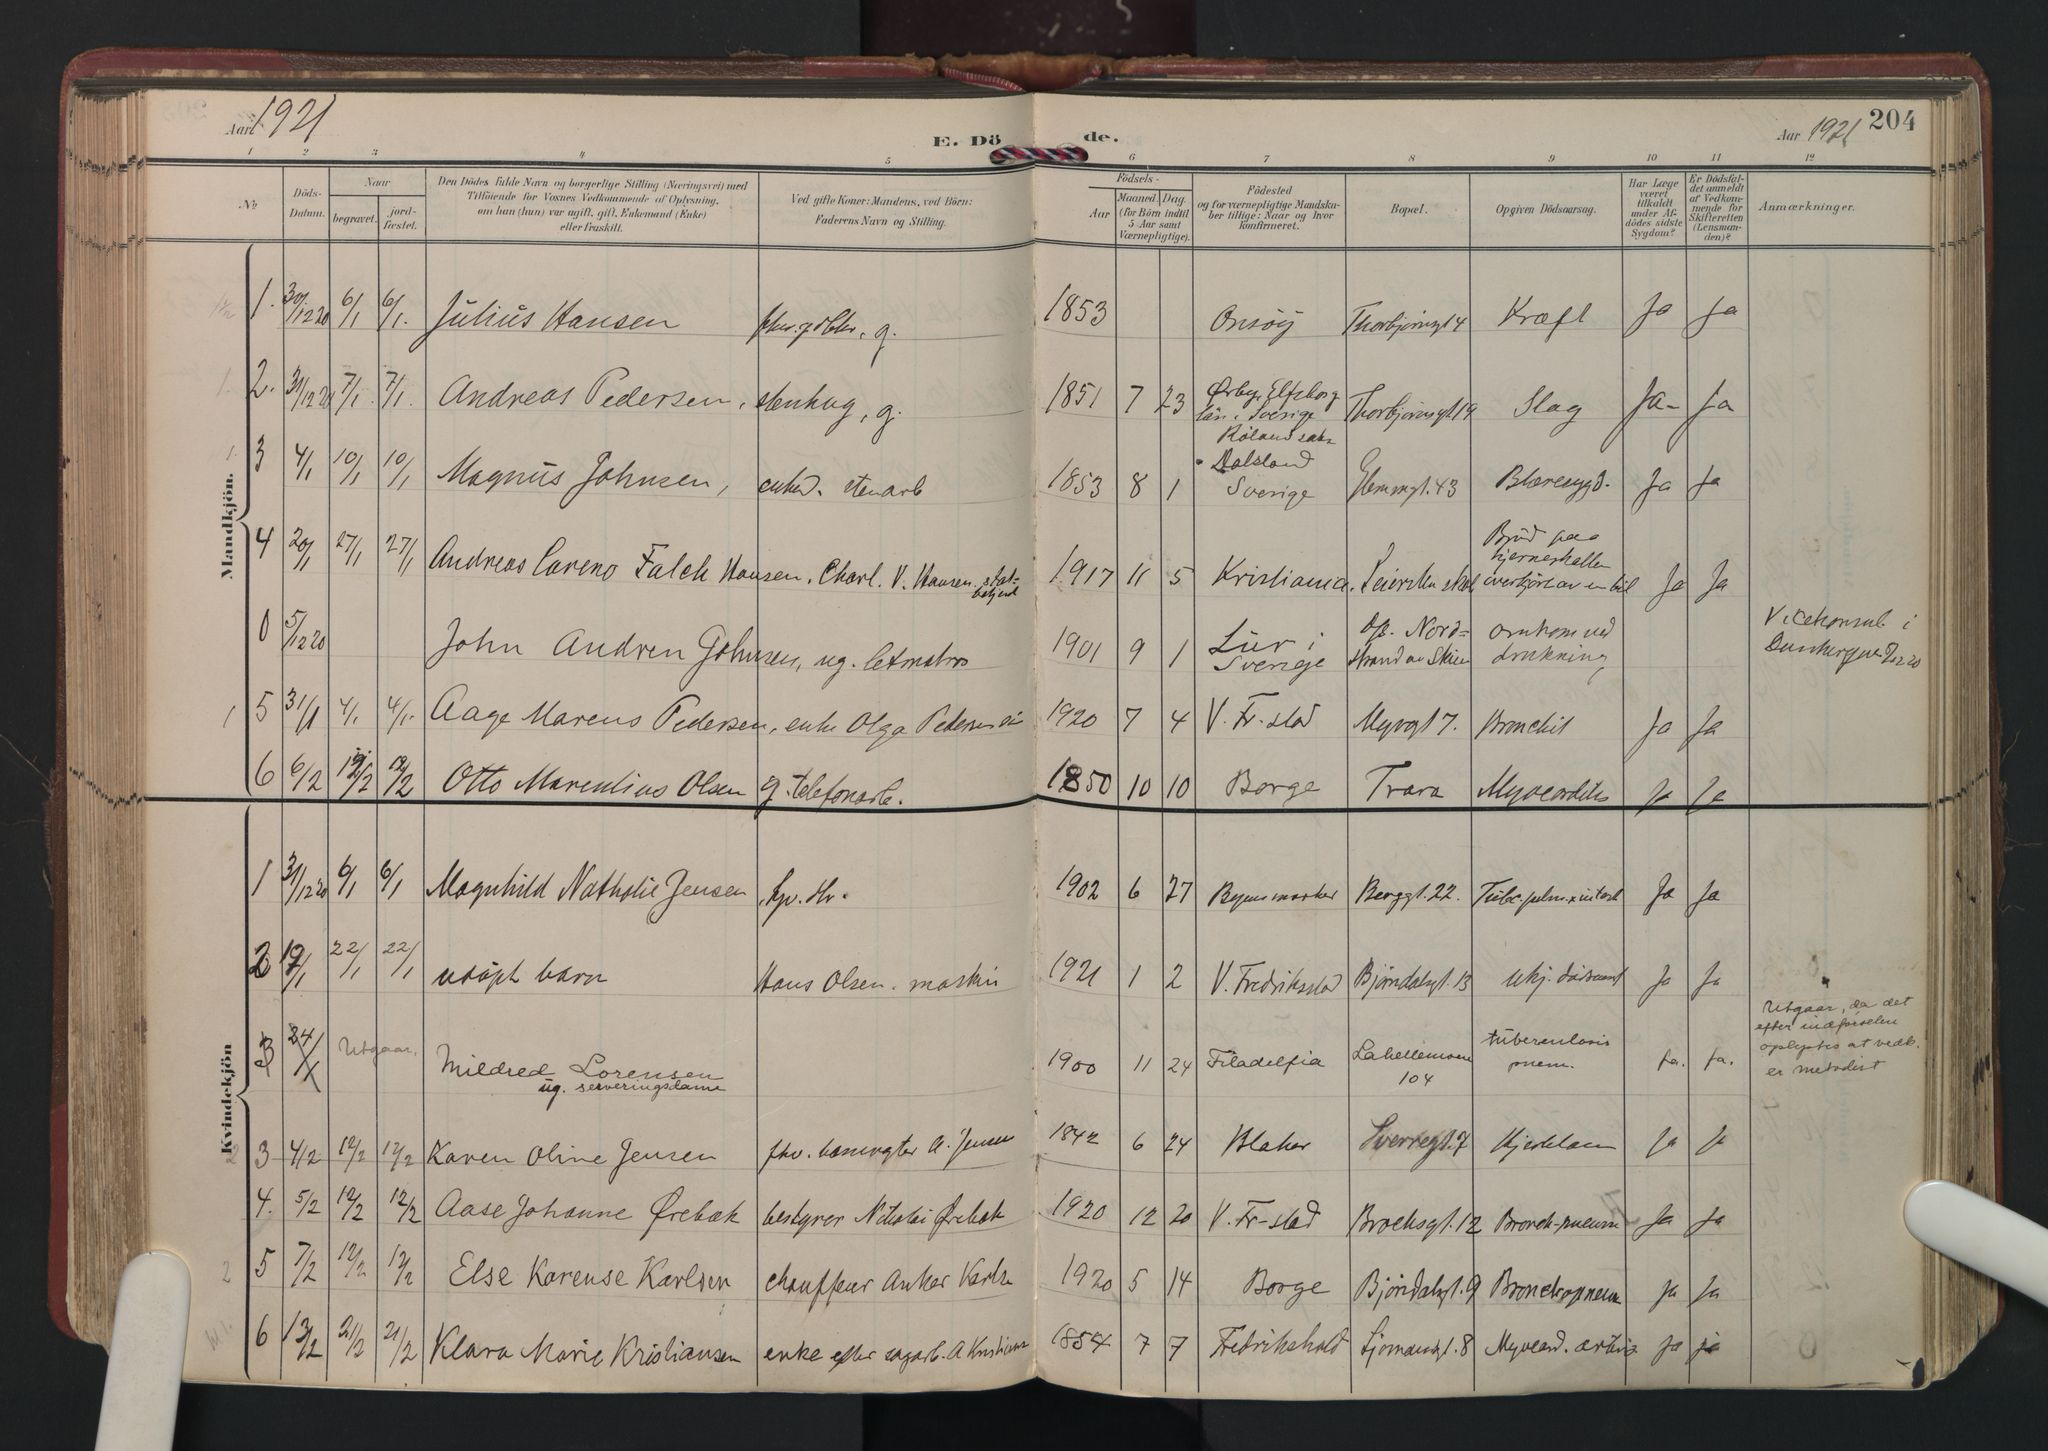 Aar 1921
E. Döde.
Aar 1921
204
1 2 3 4 5 6 7 8 9 10 11 12
No
Döds-Datum.
Naar
begravet.
jord-fæstet.
Den Dödes fulde Navn og borgerlige Stilling (Næringsvei) med
Tilföiende for Voxnes Vedkommende af Oplysning,
om han (hun) var ugift, gift, Enkemand (Enke)
eller fraskilt.
Ved gifte Koner: Mandens, ved Börn:
Faderens Navn og Stilling.
Födsels-
Aar
Maaned. Dag.
(for Börn indtil
5 Aar samt
Værnepligtige).
Födested
og for værnepligtige Mandsku-
ber tillige: Naar og hvor
konfirmeret.
Bopæl.
Opgiven Dödsaarsag.
Har Læge
været
tilkaldt
under Af-
dödes sidste
Sygdom?
Er Dödsfal-
det anmeldt
af Vedkom-
mende for
Skifteretten
(Lensman-
den)?
Anmærkninger.
Mandkjön.
1. 30/12 20 6/1 6/1. Julius Hansen g. 1853 Onsøy Thorbjörnsgt 4 Kræft Ja Ja
2. 31/12 20 7/1 7/1. Andreas Pedersen, stenhug, g. 1851 7 23 Ørby, Elfsborg
län i Sverige Thorbjörnsgt. 19 Slag Ja Ja
3 4/1 10/1 10/1 Magnus Johnsen, enkem. stenarb 1853 8 1
Dalsland
Sverige Glemmgt. 43 Blæresygd. Ja Ja
4 20/1 27/1 27/1 Andreas Careno Falck Hansen, Charl. V. Hansen 1917 11 5 Kristiania Brud paa
hjerneskallen
overkjört av en bil Ja Ja
0 5/12 20 John Andren Johnsen, ug. letmatros 1901 9 1 Lur i
Sverige Nord-
strand av Skien omkom ved
drukning
Vicekonsul i
5 31/1 4/1 4/1. Aage Marens Pedersen, enke Olga Pedersen 1920 7 4 V. Fr.stad Myrgt 7. Bronchit Ja Ja
6 6/2 12/2 12/2 Otto Marentius Olsen g. telefonarb. 1850 10 10 Borge Trara Myocarditis Ja Ja
Kvindekjön
1 31/12 20 6/1 6/1 Magnhild Nathalie Jensen 1902 6 27 Byens marker Berggt. 22. Ja Ja
2 22/1 22/1 udöpt barn Hans Olsen, maskin 1921 1 2 V. Fredriksstad Bjørndalsgt. 13 Ja Ja
3 24/1 Utgaar. Mildred Lorensen
ug. serveringsdame 1900 11 24 Filadelfia Lahellemoen
104 tuberculosis
pnem. Ja. Ja.
Utgaar, da det
efter indførselen
oplystes at vedk.
er metodist
3 4/2 12/2 12/2 Karen Oline Jensen A. Jensen 1842 6 24 Blaker Sverresgt. 7 Hjertelam Ja Ja
4. 5/2 12/2 12/2 Aase Johanne Ørebæk bestyrer Nikolai Ørebæk 1920 12 20 V. Fr-stad Brochsgt. 12 Bronch-pneum Ja Ja
5 7/2 12/2 12/2 Else Karense Karlsen chauffeur Anker Karlsen 1920 5 14 Borge Bjørndalsgt. 9 Bronchopneum Ja Ja
6 13/2 21/2 21/2 Klara Marie Kristiansen enke efter sagarb. A Kristians 1854 7 7 Fredrikshald Myocard. Ja ja